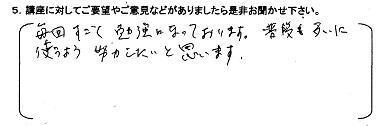 5. 講座に対してご要望やご意見などがありましたら是非お聞かせ下さい。
毎回すごく勉強になっております。普段も
使うよう努力したいと思います。